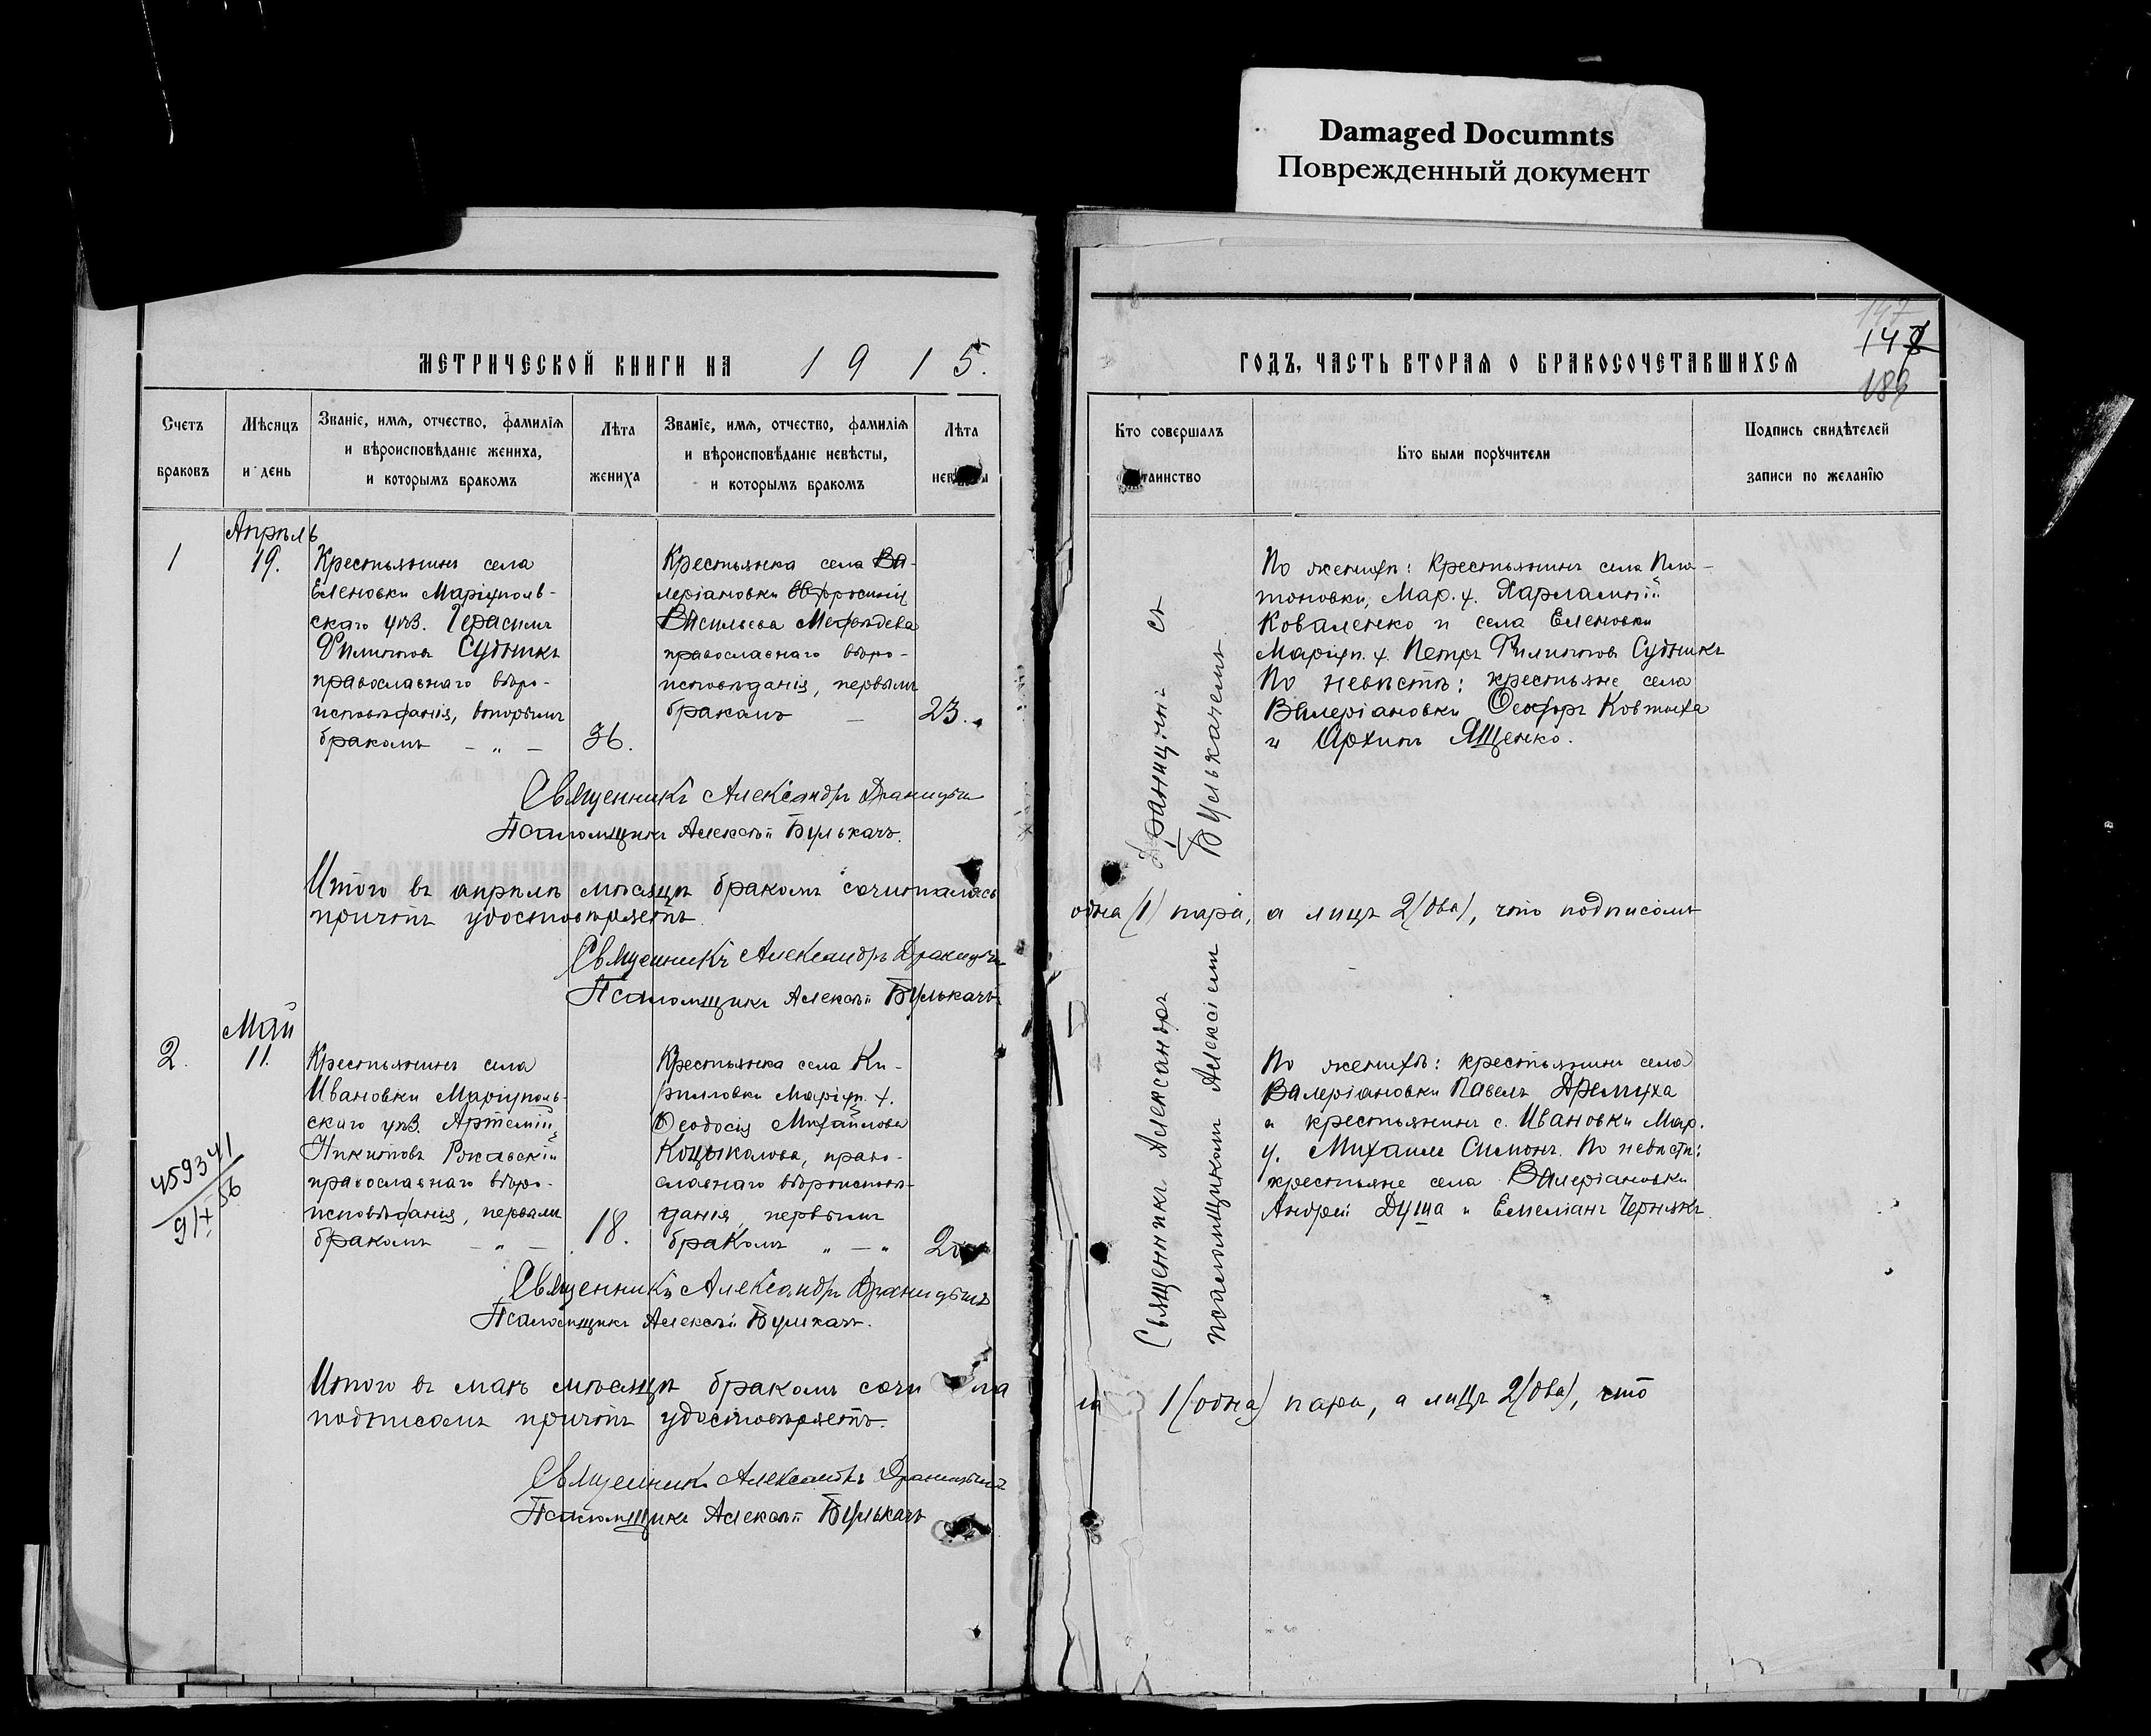 Damaged Documnts
Поврежденный документ
МЕТРИЧЕСКОЙ КНИГИ НА 1915.
Счетъ браковъ
Мѣсяцъ и день
Званіе, имя, отчество, фамилія
и вѣроисповѣданіе жениха,
и которымъ бракомъ
Лѣта
жениха
Званіе, имя, отчество, фамилія
и вѣроисповѣданіе невѣсты,
и которымъ бракомъ
Лѣта
1
Апрѣль
19.
Крестьянинъ села
Еленовки Маріуполь-
скаго уѣз. Герасимъ
Филиповъ Судникъ
православнаго вѣро-
исповѣданія, вторымъ
бракомъ – „ –
36.
Крестьянка села Ва-
леріановки Евфросинія
Васильева Мефодева
православнаго вѣро-
исповѣданія, первымъ
бракомъ –
23.
Священникъ Александръ Драницынъ
Псаломщикъ Алексѣй Булькачъ.
Итого въ апрѣлѣ мѣсяцѣ бракомъ сочиталась
причтъ удостовѣряетъ.
Священникъ Александръ Драницынъ
Псаломщикъ Алексѣй Булькачъ
2.
Май
11.
Крестьянинъ села
Ивановки Маріуполь-
скаго уѣз. Артемій
Никитовъ
православнаго вѣро-
исповѣданія, первымъ
бракомъ – „ –
18.
Крестьянка села Ки-
риловки Маріуп. у.
Ѳеодосія Михайлова
право-
славнаго вѣроисповѣ-
данія, первымъ
бракомъ „ – „
459341
91+ 56
Священникъ Александръ Драницынъ
Псаломщикъ Алексѣй Булькачъ.
Итого въ маѣ мѣсяцѣ бракомъ
подписомъ причтъ удостовѣряетъ.
Священникъ Александръ Драницынъ
Псаломщикъ Алексѣй Булькачъ
ГОДЪ, ЧАСТЬ ВТОРАЯ О БРАКОСОЧЕТАВШИХСЯ
147
Кто совершалъ
таинство
Кто были поручители
Подпись свидѣтелей
записи по желанію
Священникъ Александръ Драницынъ съ
псаломщикомъ Алексіемъ Булькачемъ
По женихѣ: крестьянинъ села Пла-
тоновки, Мар. у. Харлампій
Коваленко и села Еленовки
Маріуп. у. Петръ Филиповъ Судникъ
По невѣстѣ: крестьяне села
Валеріановки Ѳеодоръ Ковтюха
и Архипъ Ященко.
одна (1) пара, а лицъ 2 (два), что подписомъ
По женихѣ: крестьянинъ села
Валеріановки Павелъ Дремуха
и крестьянинъ с. Ивановки Мар.
у. Михаилъ Симонъ. По невѣстѣ:
крестьяне села Валеріановки
Андрей Душа и Емеліанъ Чернякъ
1 (одна) пара, а лицъ 2 (два), что